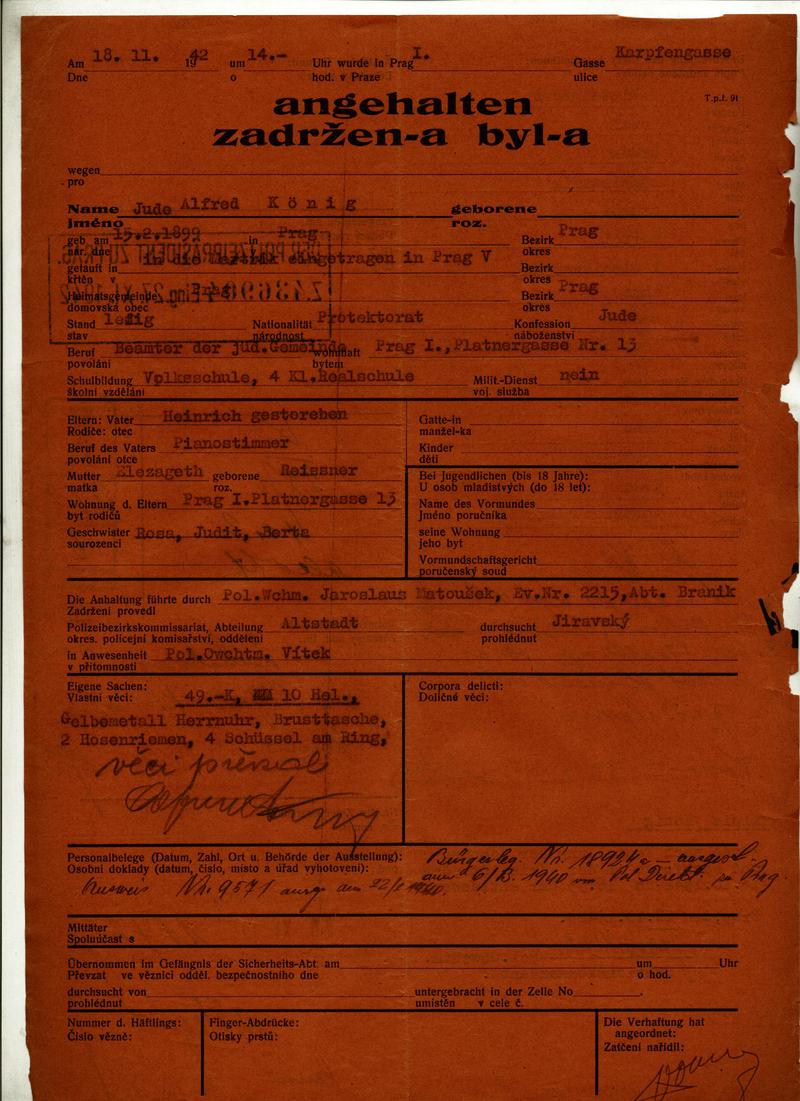 Am 18. 11. 1942 um 14.- Uhr wurde in Prag I. Gasse Karpfengasse
Dne o hod. v Praze ulice
angehalten
T.p.ř. 91
zadržen-a byl-a
wegen
pro
Name Jude Alfred König geborene
jméno roz.
geb. am 15.2.1899 in Prag Bezirk Prag
nar. dne okres
getauft in in die Matrik eingetragen in Prag V Bezirk
křtěn v okres
Heimatsgemeinde Prag Bezirk Prag
domovská obec okres
Stand ledig Nationalität Protektorat Konfession Jude
stav národnost náboženství
Beruf Beamter der jüd.Gemeinde wohnhaft Prag I.,Platnergasse Nr. 13
povolání bytem
Schulbildung Volksschule, 4 Kl.Realschule Milit.-Dienst nein
školní vzdělání voj. služba
Eltern: Vater Heinrich gestoreben
Rodiče: otec
Beruf des Vaters Pianostimmer
povolání otce
Mutter Elezageth geborene Reissner
matka roz.
Wohnung d. Eltern Prag I.Platnergasse 13
byt rodičů
Geschwister Rosa, Judit, Berta
sourozenci
Gatte-in
manžel-ka
Kinder
děti
Bei Jugendlichen (bis 18 Jahre):
U osob mladistvých (do 18 let):
Name des Vormundes
Jméno poručníka
seine Wohnung
jeho byt
Vormundschaftsgericht
poručenský soud
Die Anhaltung führte durch Pol.Wchm. Jaroslaus Matoušek, Ev.Nr. 2215,Abt. Branik
Zadržení provedl
Polizeibezirkskommissariat, Abteilung Altstadt durchsucht Jiravský
okres. policejní komisařství, oddělení prohlédnut
in Anwesenheit Pol.Owchtm. Vítek
v přítomnosti
Eigene Sachen:
Vlastní věci: 49.-K, 10 Hel.,
Gelbemetall Herrnuhr, Brusttasche,
2 Hosenriemen, 4 Schüssel am Ring,
věci převzal
Corpora delicti:
Doličné věci:
Personalbelege (Datum, Zahl, Ort u. Behörde der Ausstellung): Bürgerleg. Nr. 18924
Osobní doklady (datum, číslo, místo a úřad vyhotovení): 1940 Pol Direkt. Prag.
Ausweis Nr. 9571 am 1940.
Mittäter
Spoluúčast s
Übernommen im Gefängnis der Sicherheits-Abt. am um Uhr
Převzat ve věznici odděl. bezpečnostního dne o hod.
durchsucht von untergebracht in der Zelle No
prohlédnut umístěn v cele č.
Nummer d. Häftlings:
Číslo vězně:
Finger-Abdrücke:
Otisky prstů:
Die Verhaftung hat
angeordnet:
Zatčení nařídil: